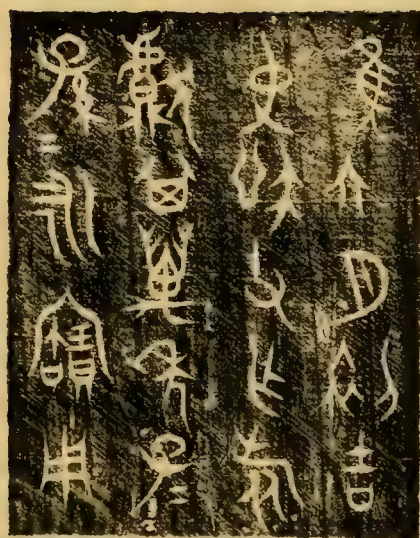 隹六月初吉
史父乍
其萬年子=
孫=永寶用